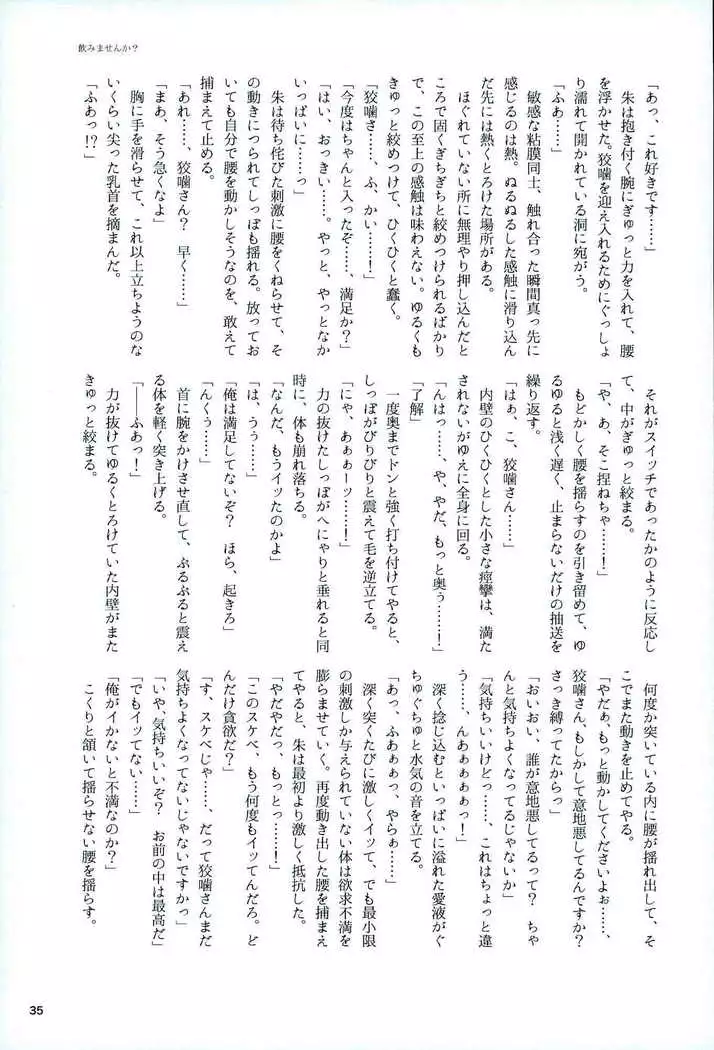 飲みませんか？
「あっ、これ好きです……」
朱は抱き付く腕にぎゅっと力を入れて、腰
を浮かせた。狡噛を迎え入れるためにぐっしょ
り濡れて開かれている洞に宛がう。
「ふぁ……」
敏感な粘膜同士、触れ合った瞬間真っ先に
感じるのは熱。ぬるぬるした感触に滑り込ん
だ先には熱くとろけた場所がある。
ほぐれていない所に無理やり押し込んだと
ころで固くぎちぎちと絞めつけられるばかり
で、この至上の感触は味わえない。ゆるくも
きゅっと絞めつけて、ひくひくと蠢く。
「狡噛さ……、ふ、かい……！」
「今度はちゃんと入ったぞ……、満足か？」
「はい、おっきい……。やっと、やっとなか
いっぱいに……っ」
朱は待ち侘びた刺激に腰をくねらせて、そ
の動きにつられてしっぽも揺れる。放ってお
いても自分で腰を動かしそうなのを、敢えて
捕まえて止める。
「あれ……、狡噛さん？　早く……」
「まあ、そう急くなよ」
胸に手を滑らせて、これ以上立ちようのな
いくらい尖った乳首を摘まんだ。
「ふあっ！？」
それがスイッチであったかのように反応し
て、中がぎゅっと絞まる。
「や、あ、そこ捏ねちゃ……！」
もどかしく腰を揺らすのを引き留めて、ゆ
るゆると浅く遅く、止まらないだけの抽送を
繰り返す。
「はぁ、こ、狡噛さん……」
内壁のひくひくとした小さな痙攣は、満た
されないがゆえに全身に回る。
「んはっ……、や、やだ、もっと奥ぅ……！」
「了解」
一度奥までドンと強く打ち付けてやると、
しっぽがびりびりと震えて毛を逆立てる。
「にゃ、あぁぁーッ……！」
力の抜けたしっぽがへにゃりと垂れると同
時に、体も崩れ落ちる。
「なんだ、もうイッたのかよ」
「は、うぅ……」
「俺は満足してないぞ？　ほら、起きろ」
「んくぅ……」
首に腕をかけさせ直して、ぷるぷると震え
る体を軽く突き上げる。
「――ふあっ！」
力が抜けてゆるくとろけていた内壁がまた
きゅっと絞まる。
何度か突いている内に腰が揺れ出して、そ
こでまた動きを止めてやる。
「やだぁ、もっと動かしてくださいよぉ……、
狡噛さん、もしかして意地悪してるんですか？
さっき縛ってたからっ」
「おいおい、誰が意地悪してるって？　ちゃ
んと気持ちよくなってるじゃないか」
「気持ちいいけどっ……、これはちょっと違
う……、んあぁぁぁぁっ！」
深く捻じ込むといっぱいに溢れた愛液がぐ
ちゅぐちゅと水気の音を立てる。
「あっ、ふあぁぁっ、やらぁ……」
深く突くたびに激しくイッて、でも最小限
の刺激しか与えられていない体は欲求不満を
膨らませていく。再度動き出した腰を捕まえ
てやると、朱は最初より激しく抵抗した。
「やだやだっ、もっとっ……！」
「このスケベ、もう何度もイッてんだろ。ど
んだけ貪欲だ？」
「す、スケベじゃ……、だって狡噛さんまだ
気持ちよくなってないじゃないですかっ」
「いや、気持ちいいぞ？　お前の中は最高だ」
「でもイッてない……」
「俺がイかないと不満なのか？」
こくりと頷いて揺らせない腰を揺らす。
35